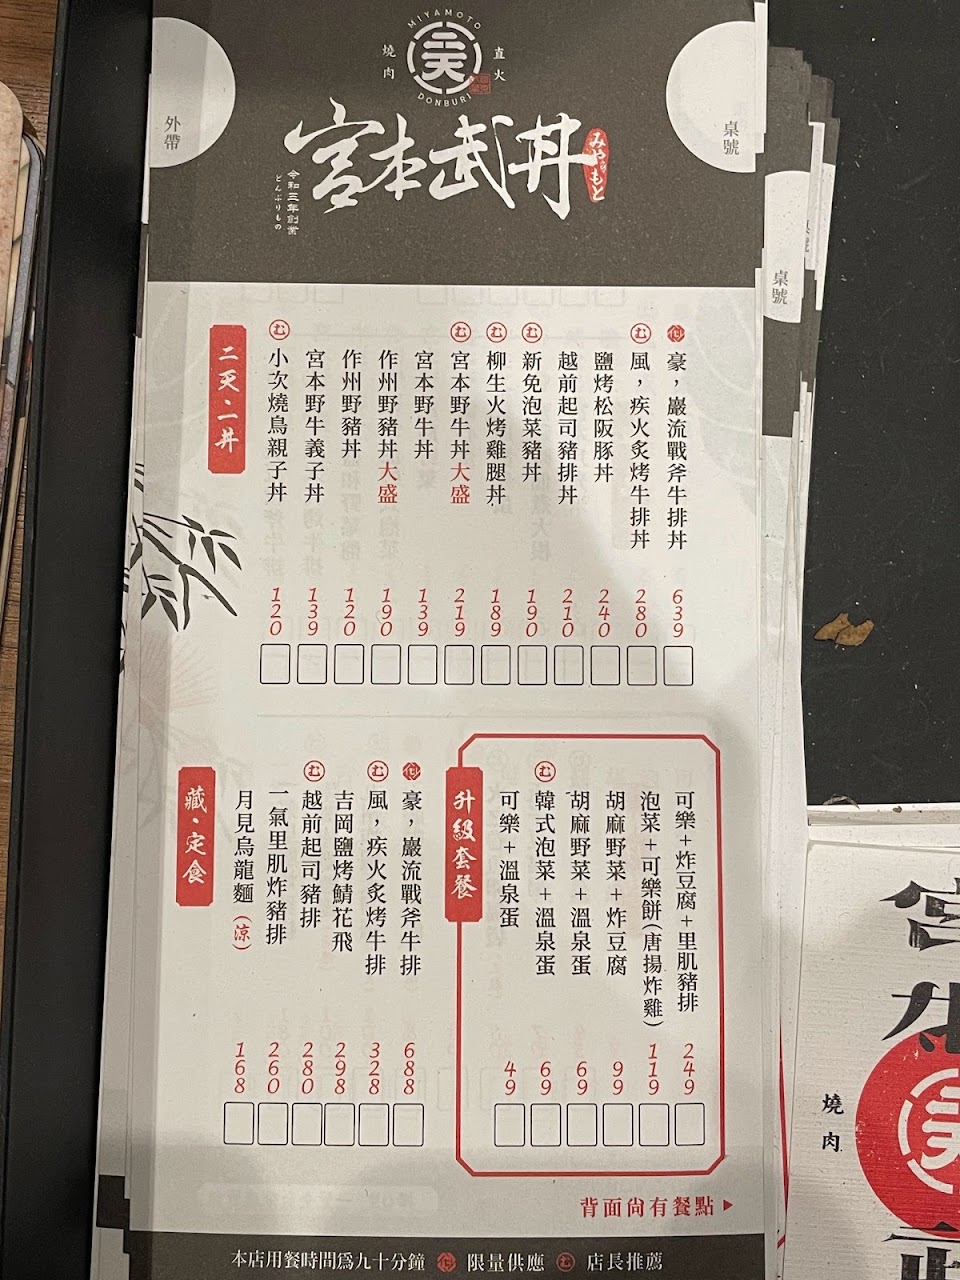 MIYAMOTO
燒肉
直火
DONBURI
宮本武丼
みやもと
令和三年創業
どんぶりもの
外帶
桌號
桌號
二天・二丼
豪，巖流戰斧牛排丼 639
む 風，疾火炙烤牛排丼 280
鹽烤松阪豚丼 240
越前起司豬排丼 210
む 新免泡菜豬丼 190
む 柳生火烤雞腿丼 189
む 宮本野牛丼大盛 219
宮本野牛丼 139
作州野豬丼大盛 190
作州野豬丼 120
宮本野牛義子丼 139
む 小次燒鳥親子丼 120
升級套餐
可樂+炸豆腐+里肌豬排 249
泡菜+可樂餅(唐揚炸雞) 119
胡麻野菜+炸豆腐 99
胡麻野菜+溫泉蛋 69
む 韓式泡菜+溫泉蛋 69
可樂+溫泉蛋 49
藏・定食
豪，巖流戰斧牛排 688
む 風，疾火炙烤牛排 328
吉岡鹽烤鯖花飛 298
む 越前起司豬排 280
一氣里肌炸豬排 260
月見烏龍麵(涼) 168
背面尚有餐點▶
本店用餐時間為九十分鐘 限量供應 む 店長推薦
燒肉